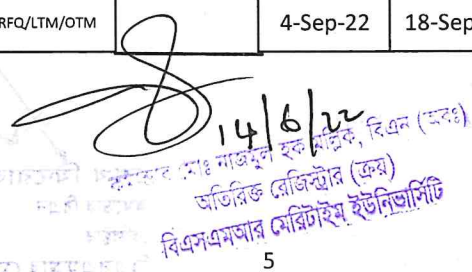 RFQ/LTM/OTM 4-Sep-22 18-Sep
14/6/22
মোঃ নাজমুল হক মল্লিক, বিএন (অবঃ)
অতিরিক্ত রেজিস্ট্রার (ক্রয়)
বিএসএমআর মেরিটাইম ইউনিভার্সিটি
5